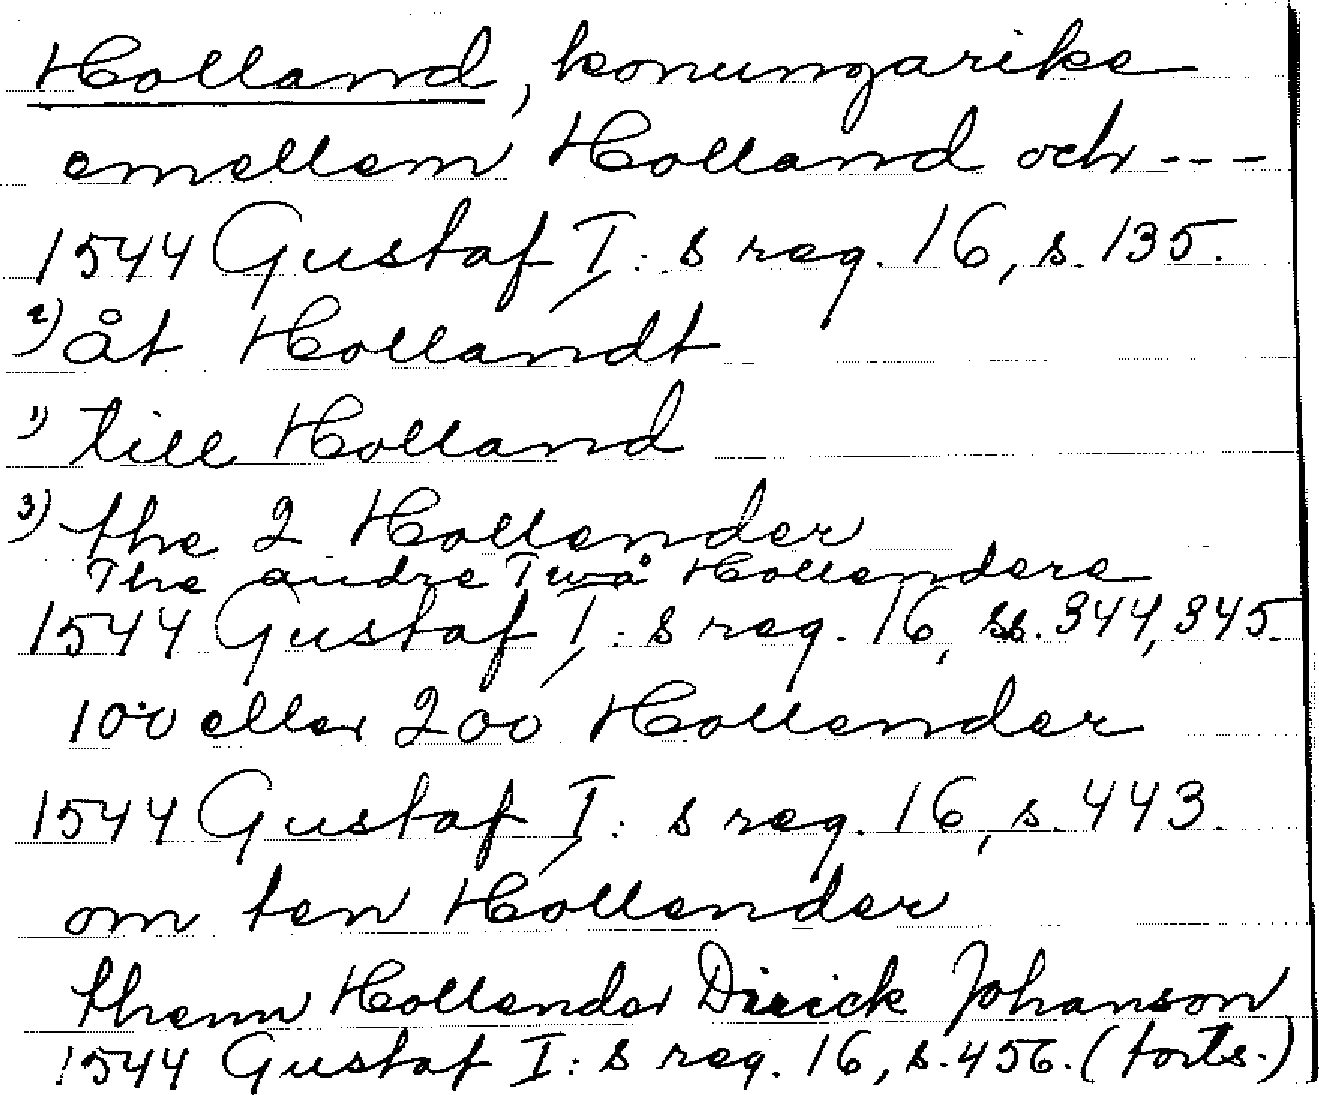 Holland, konungarike
emellem Holland och ---
1544 Gustaf I: s reg. 16, s. 135.
2) åt Hollandt
1) till Holland
3) the 2 Hollender
The andre Twå Hollendere
1544 Gustaf I: s reg. 16, ss. 344, 345.
100 eller 200 Hollender
1544 Gustaf I: s reg. 16, s. 443.
om ten Hollender
thenn Hollender Dirick Johanson
1544 Gustaf I: s reg. 16, s. 456. (forts.)